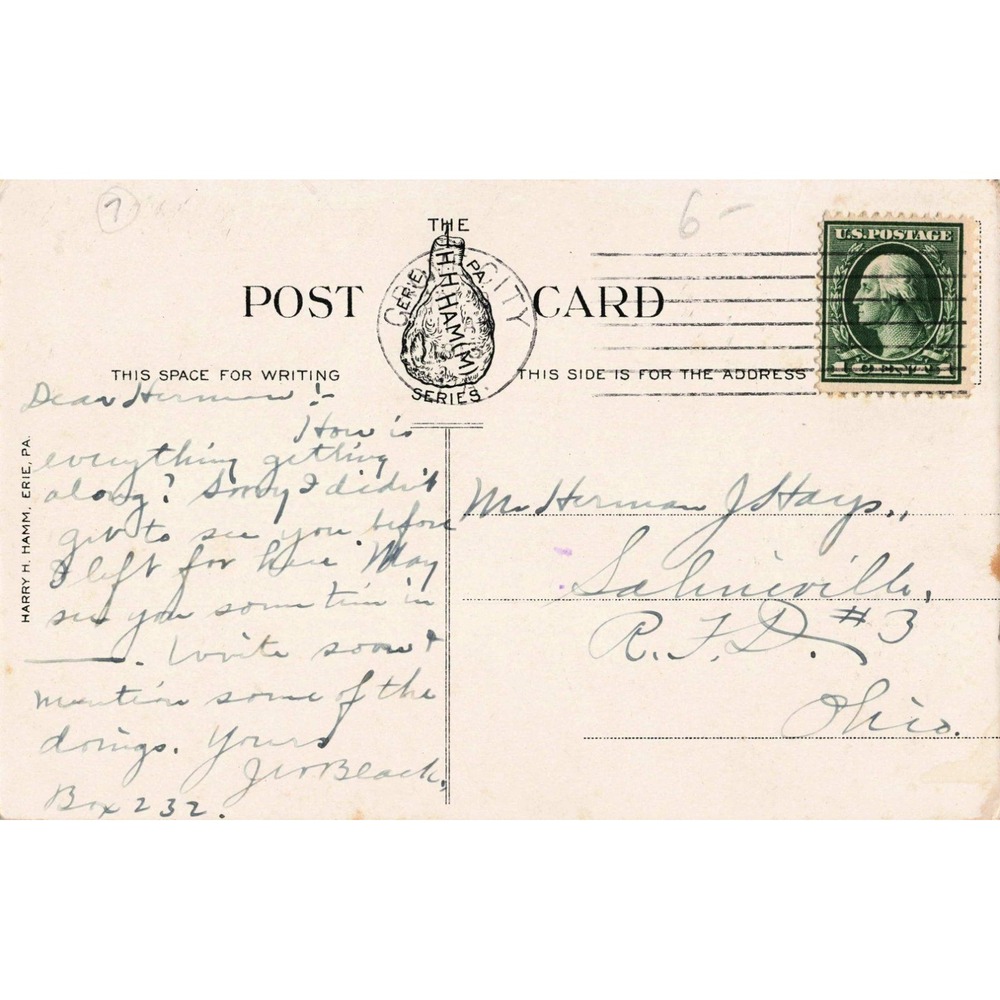 7
6-
THE
POST CARD
H.H.HAMM
ERIE, PA.
SERIES
U.S. POSTAGE
1 CENT 1
CITY
THIS SPACE FOR WRITING
THIS SIDE IS FOR THE ADDRESS
HARRY H. HAMM, ERIE, PA.
Dear Herman!-
How is
everything getting
along? Sorry I didn't
get to see you before
I left for here. May
see you some time in
———. Write soon &
mention some of the
doings. Yours
Black,
Box 232.
Mr Herman J Hays.,
Salineville,
R.F.D. #3
Ohio.